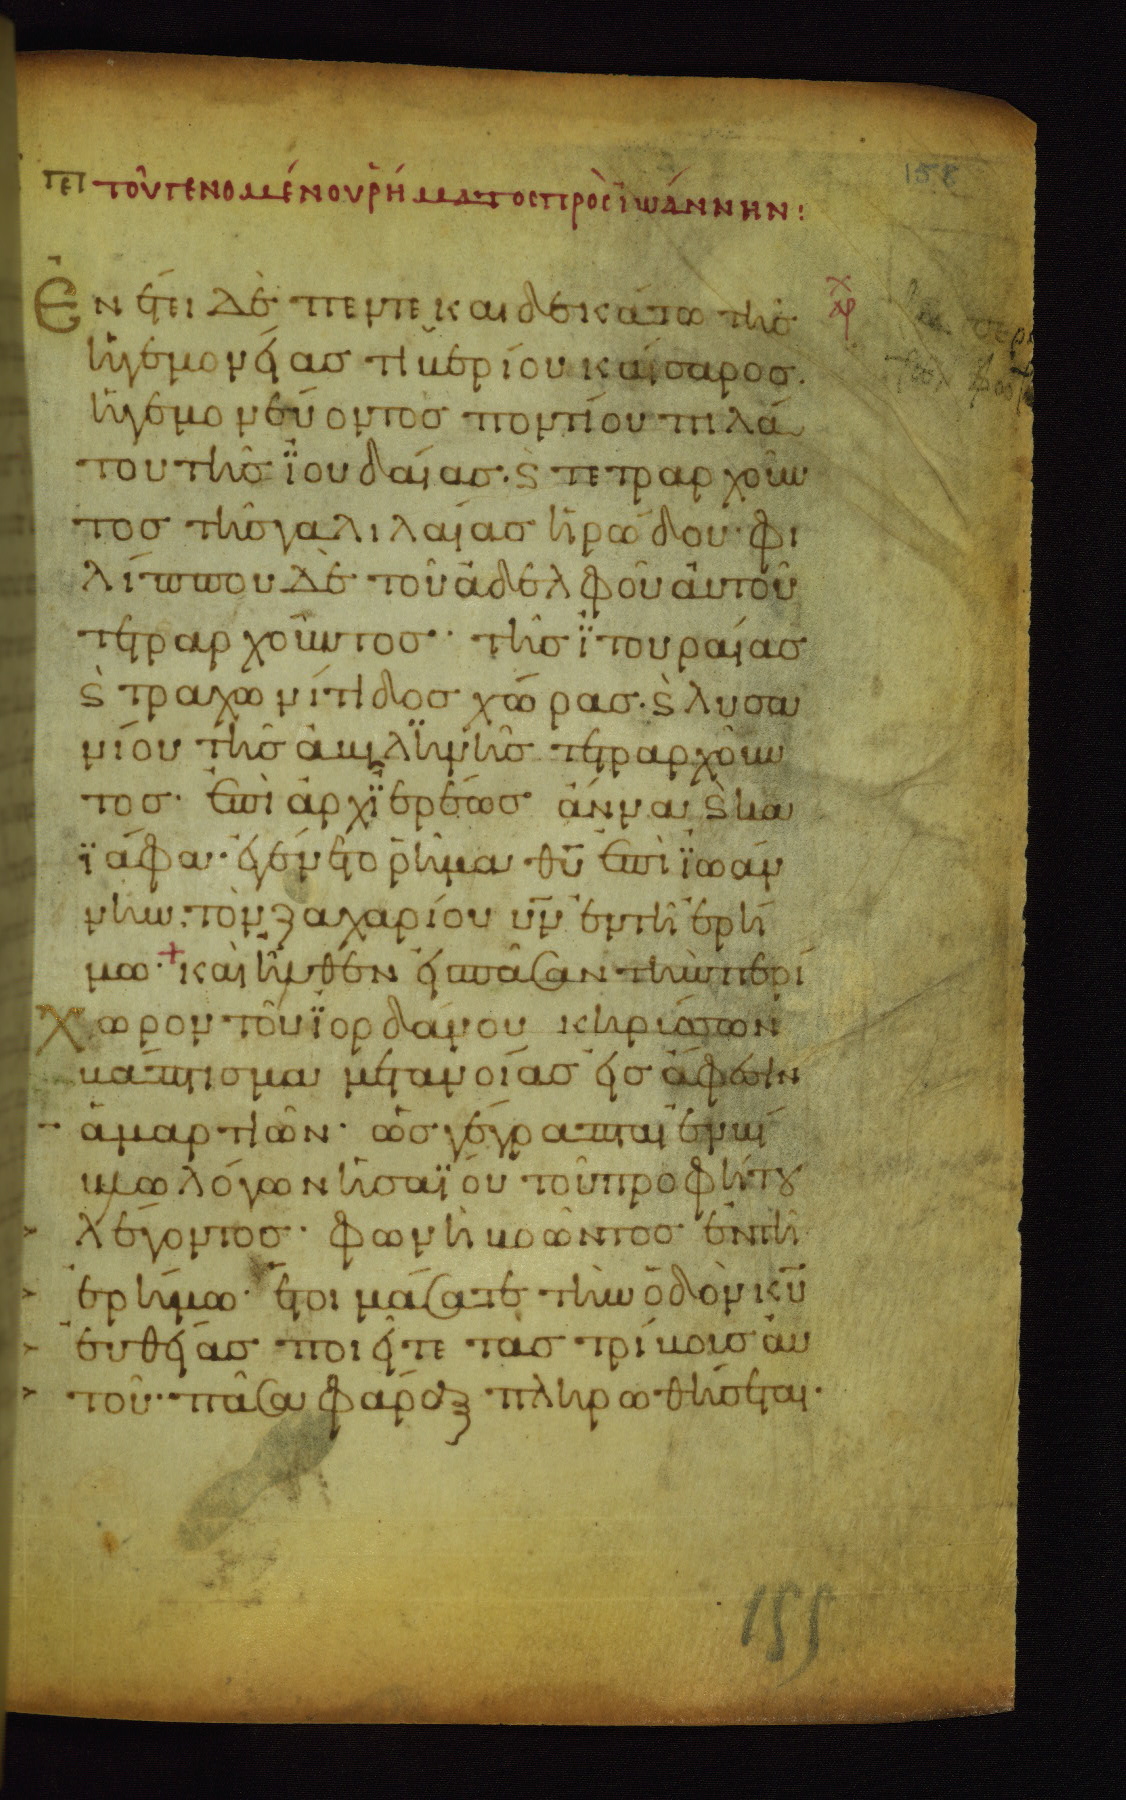 περὶ τοῦ γενομένου ῥήματος πρὸς ἰωάννην:
158
Ἐν ἔτει δὲ πεντεκαιδεκάτω τῆς
ἡγεμονείας τιβερίου καίσαρος.
ἡγεμονεύοντος ποντίου πιλά
του τῆς ϊουδαίας. ϛ τετραρχοῦν
τος τῆς γαλιλαίας ἡρώδου· φι
λίππου δὲ τοῦ ἀδελφοῦ αὐτοῦ
τετραρχοῦντος· τῆς ϊτουραίας
ϛ τραχωνίτιδος χώρας· ϛ λυσα
νίου τῆς ἀβιληνῆς τετραρχοῦν
τος· ἐπὶ ἀρχϊερέως ἄννα ϛ κα
ϊάφα· ἐγένετο ῥῆμα θῦ ἐπὶ ϊωάν
νην· τὸν ζαχαρίου υν ἐν τῆ ἐρή
μω· καὶ ἦλθεν εἰς πᾶσαν τὴν περί
χωρον τοῦ ϊορδάνου κηρύσσων
βάπτισμα μετανοίας εἰς ἄφεσιν
ἁμαρτιῶν· ὡς γέγραπται ἐν βί
βλω λόγων ἡσαϊου τοῦ προφήτου
λέγοντος· φωνὴ βοῶντος ἐν τῆ
ἐρήμω· ἑτοιμάσατε τὴν ὁδὸν κῦ
εὐθείας ποιεῖτε τὰς τρίβους αὐ
τοῦ· πᾶσα φάραγξ πληρωθήσεται·
155